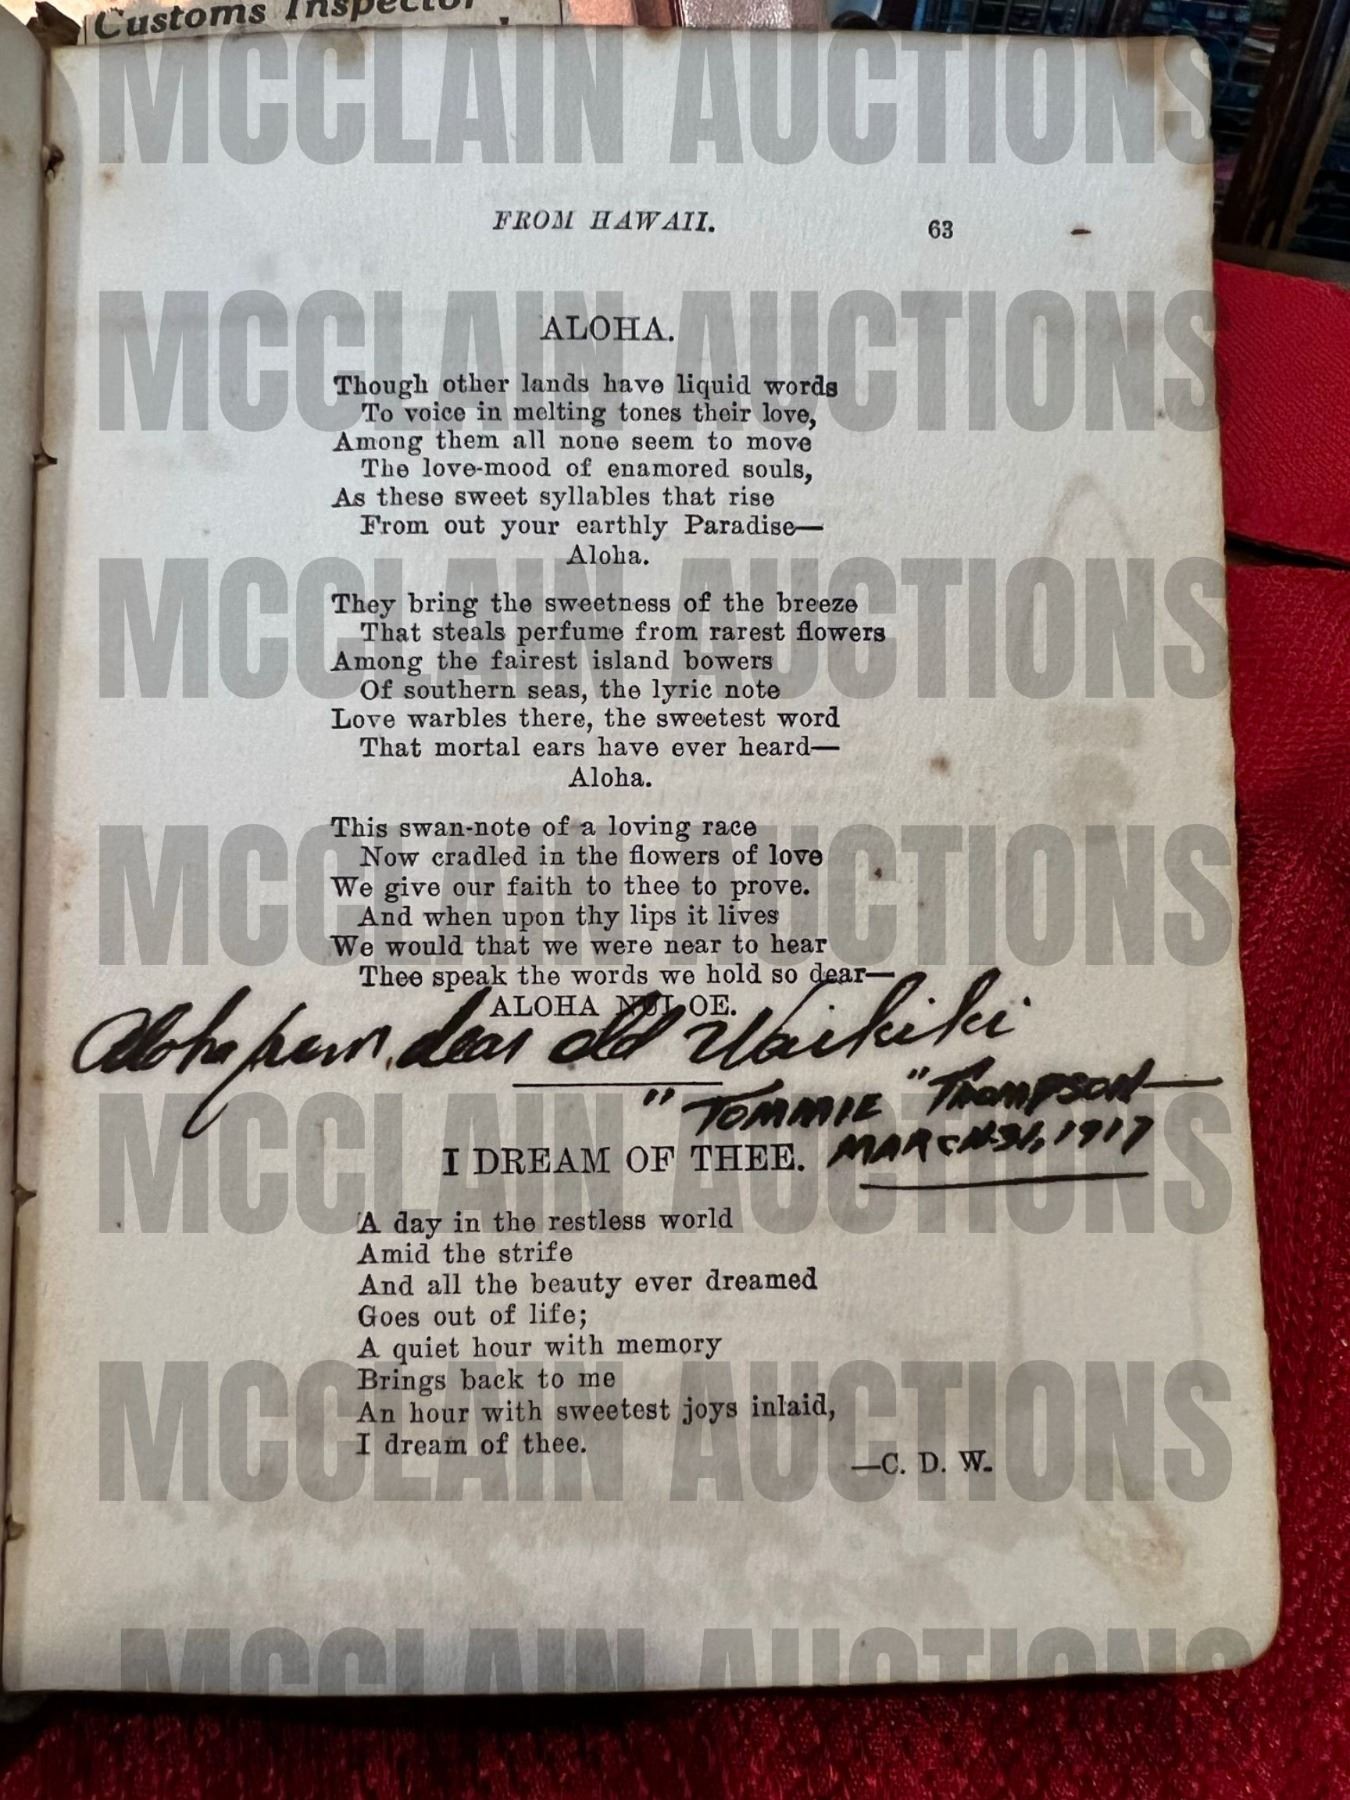 Customs Inspector
MCCLAIN AUCTIONS
FROM HAWAII. 63
MCCLAIN AUCTIONS
ALOHA.
Though other lands have liquid words
To voice in melting tones their love,
Among them all none seem to move
The love-mood of enamored souls,
As these sweet syllables that rise
From out your earthly Paradise—
Aloha.
MCCLAIN AUCTIONS
They bring the sweetness of the breeze
That steals perfume from rarest flowers
Among the fairest island bowers
Of southern seas, the lyric note
Love warbles there, the sweetest word
That mortal ears have ever heard—
Aloha.
MCCLAIN AUCTIONS
This swan-note of a loving race
Now cradled in the flowers of love
We give our faith to thee to prove.
And when upon thy lips it lives
We would that we were near to hear
Thee speak the words we hold so dear—
ALOHA NUI OE.
Aloha from dear old Waikiki
"TOMMIE" THOMPSON—
MARCH 31, 1917
MCCLAIN AUCTIONS
I DREAM OF THEE.
A day in the restless world
Amid the strife
And all the beauty ever dreamed
Goes out of life;
A quiet hour with memory
Brings back to me
An hour with sweetest joys inlaid,
I dream of thee.
—C. D. W.
MCCLAIN AUCTIONS
MCCLAIN AUCTIONS